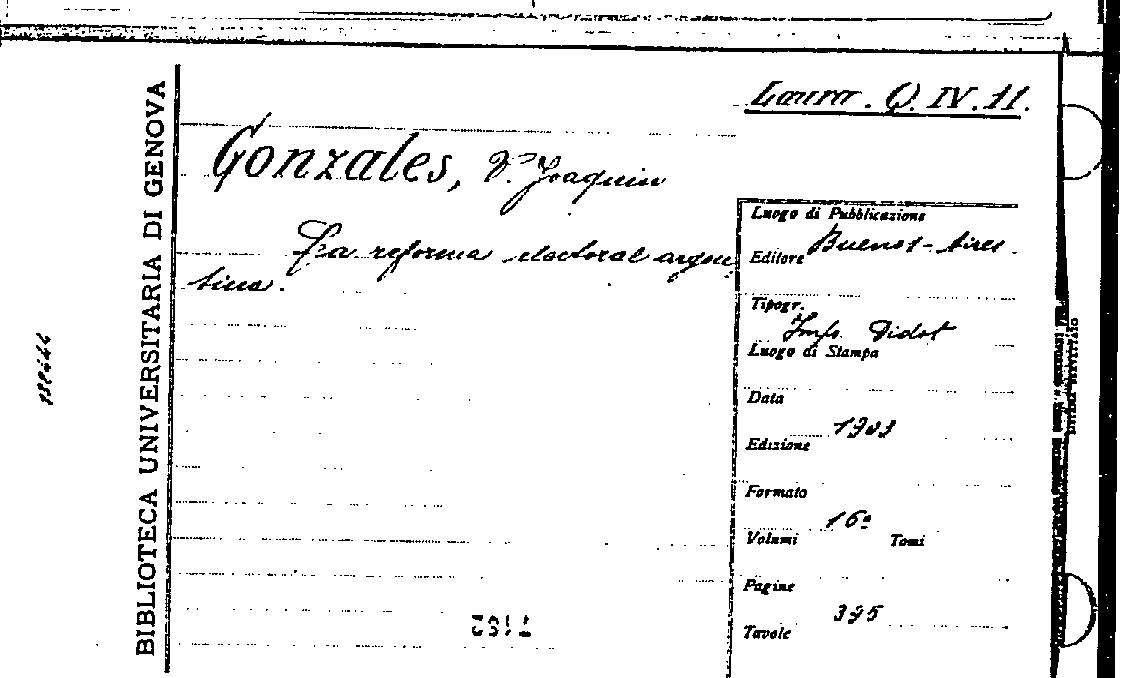 Laura. Q. IV. 11.
Gonzales, V. Joaquin
La reforma electoral argen
tina.
BIBLIOTECA UNIVERSITARIA DI GENOVA
Luogo di Pubblicazione
Buenos-Aires
Editore
Tipogr.
Imp. Didot
Luogo di Stampa
Data
1903
Edizione
Formato
16º
Volumi Tomi
Pagine
395
Tavole